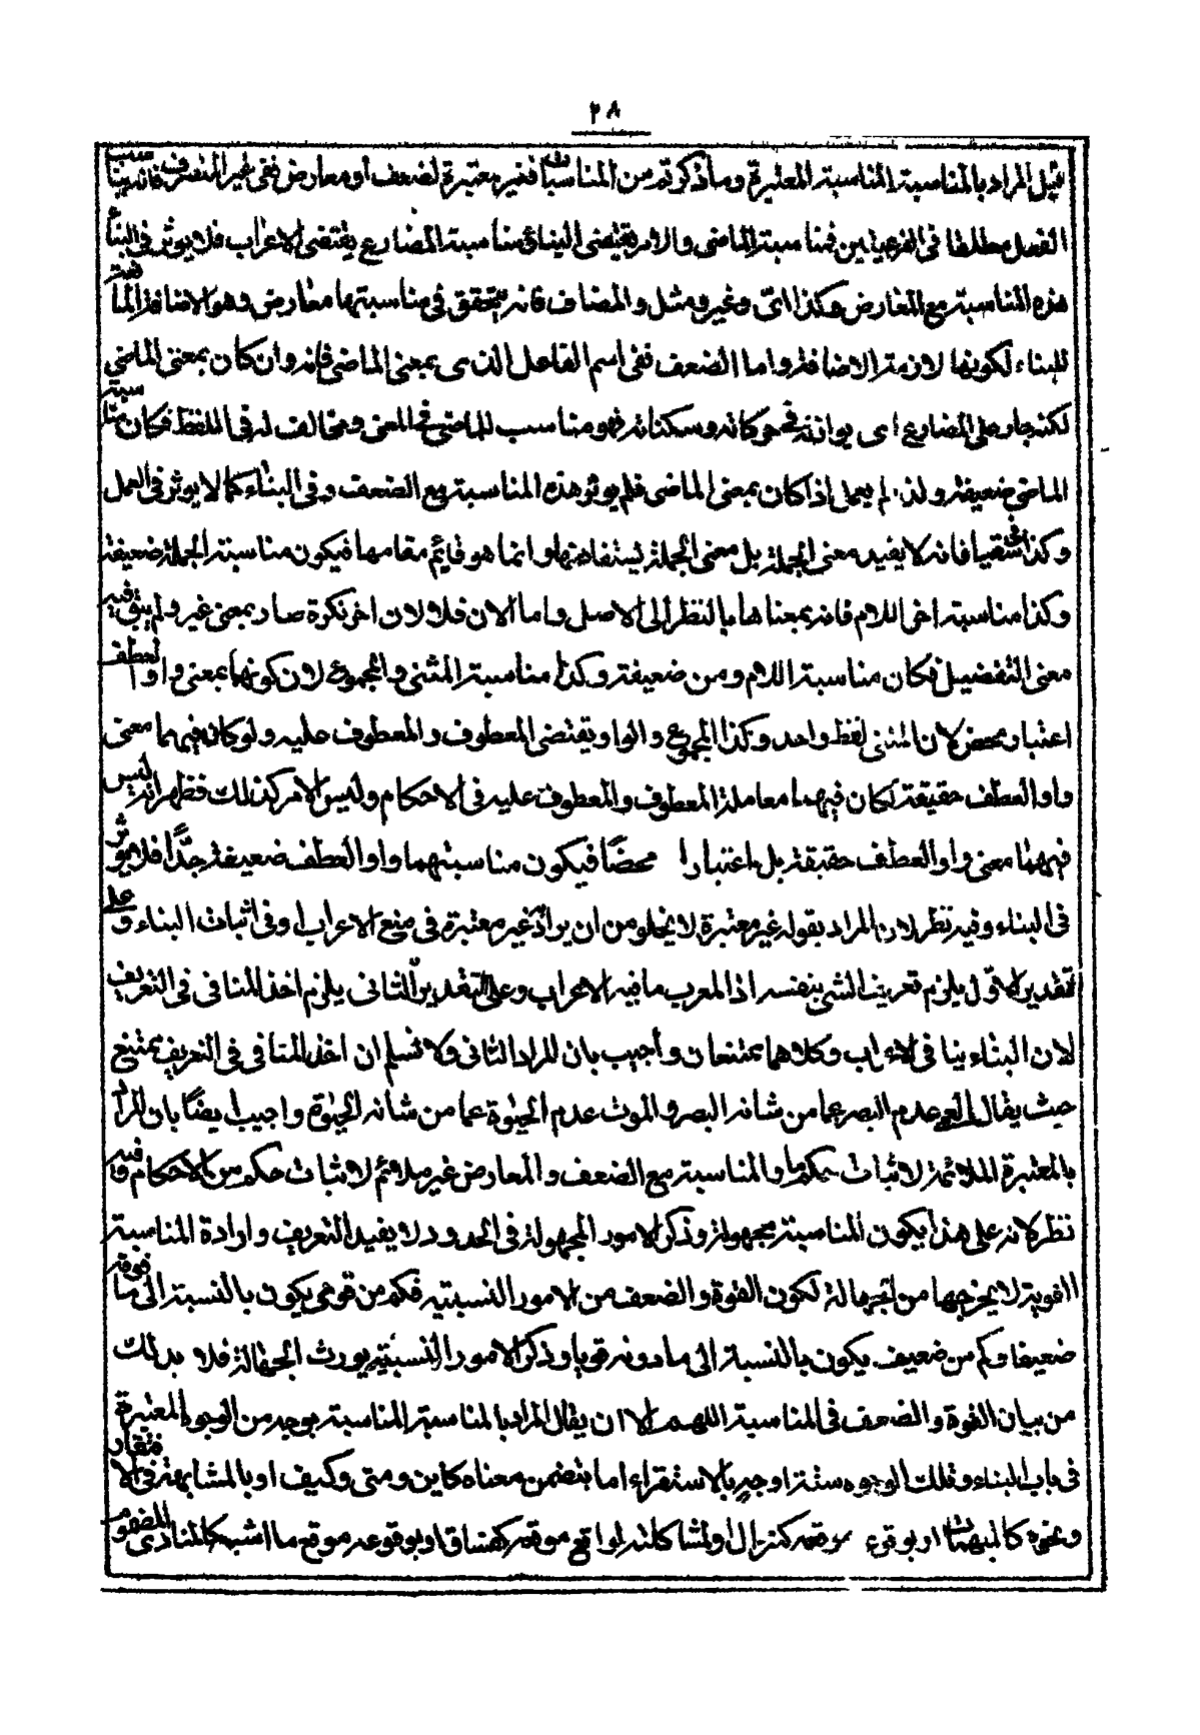 ٢٨
قيل المراد بالمناسبة المناسبة المعتبرة وما ذكرتم من المناسبات فغير معتبرة لضعف أو معارض ففى غير المنصرف فانه يناسب
الفعل مطلقا فى الفرعيتين فمناسبة الماضى والامر يقتضى البناء ومناسبة المضارع يقتضى الاعراب فلا يوثر فى البناء
هذه المناسبة مع المعارض وكذا اىّ وغير ومثل والمضاف فانه يتحقق فى مناسبتها معارض وهو الاضافة المانعة
للبناء لكونها لازمة الاضافة واما الضعف ففى اسم الفاعل الذى بمعنى الماضى فانه وان كان بمعنى الماضى
لكنه جار على المضارع اى يوازنه فى حركاته وسكناته فهو مناسب للماضى فى المعنى ومخالف له فى اللفظ فكان مناسبة
الماضى ضعيفة ولذا لم يعمل اذا كان بمعنى الماضى فلم يوثر هذه المناسبة مع الضعف فى البناء كما لا يوثر فى العمل
وكذا فانه لا يفيد معنى الجملة بل معنى الجملة يستفاد منها وانما هو قايم مقامها فيكون مناسبة الجملة ضعيفة
وكذا مناسبة اخر اللام فانه بمعناها بالنظر الى الاصل واما الان فلا لان اخر نكرة صار بمعنى غير ولم يبق فيه
معنى التفضيل فكان مناسبة اللام ومن ضعيفة وكذا مناسبة المثنى والمجموع لان كونهما بمعنى واو العطف
اعتبار محض لان المثنى لفظ واحد وكذا المجموع والواو يقتضى المعطوف والمعطوف عليه ولو كان فيهما معنى
واو العطف حقيقة لكان فيهما معاملة المعطوف والمعطوف عليه فى الاحكام وليس الامر كذلك فظهر انه ليس
فيهما معنى واو العطف حقيقة بل اعتبارا محضًا فيكون مناسبتهما واو العطف ضعيفة جدًّا فلا يوثر
فى البناء وفيه نظر لان المراد بقوله غير معتبرة لا يخلو من ان يراد غير معتبرة فى منع الاعراب او فى اثبات البناء وعلى
تقدير الاوّل يلزم تعريف الشئ بنفسه اذ المعرب ما فيه الاعراب وعلى التقدير الثانى يلزم اخذ المنافى فى التعريف
لان البناء ينافى الاعراب وكلاهما ممتنعان وأجيب بان المراد الثانى ولا نسلم ان اخذ المنافى فى التعريف ممتنع
حيث يقال العمى عدم البصر عما من شانه البصر والموت عدم الحيوة عما من شانه الحيوة واجيب ايضًا بان المراد
بالمعتبرة الملائمة لاثبات حكم ما والمناسبة مع الضعف والمعارض غير ملائم لاثبات حكم من الاحكام وفيه
نظر لانه على هذا يكون المناسبة مجهولة وذكر الامور المجهولة فى الحدود لا يفيد التعريف وارادة المناسبة
القوية لا يخرجها من الجهالة لكون القوة والضعف من الامور النسبتيه فكم من قوى يكون بالنسبة الى ما فوقه
ضعيفا وكم من ضعيف يكون بالنسبة الى ما دونه قويا وذكر الامور النسبتيه يورث الجهالة فلا بد لك
من بيان القوة والضعف فى المناسبة اللهم الا ان يقال المراد بالمناسبة المناسبة بوجه من الوجوه المعتبرة
فى باب البناء وتلك الوجوه ستة اوجه بالاستقراء اما بتضمن معناه كاين ومتى وكيف او بالمشابهة فى الافتقار
ونحوه كالمبهمات او بوقوعه موقعه كنزال او لمشاكلته لواقع موقعه كفساق او بوقوعه موقع ما اشبهه كالمنادى المضموم